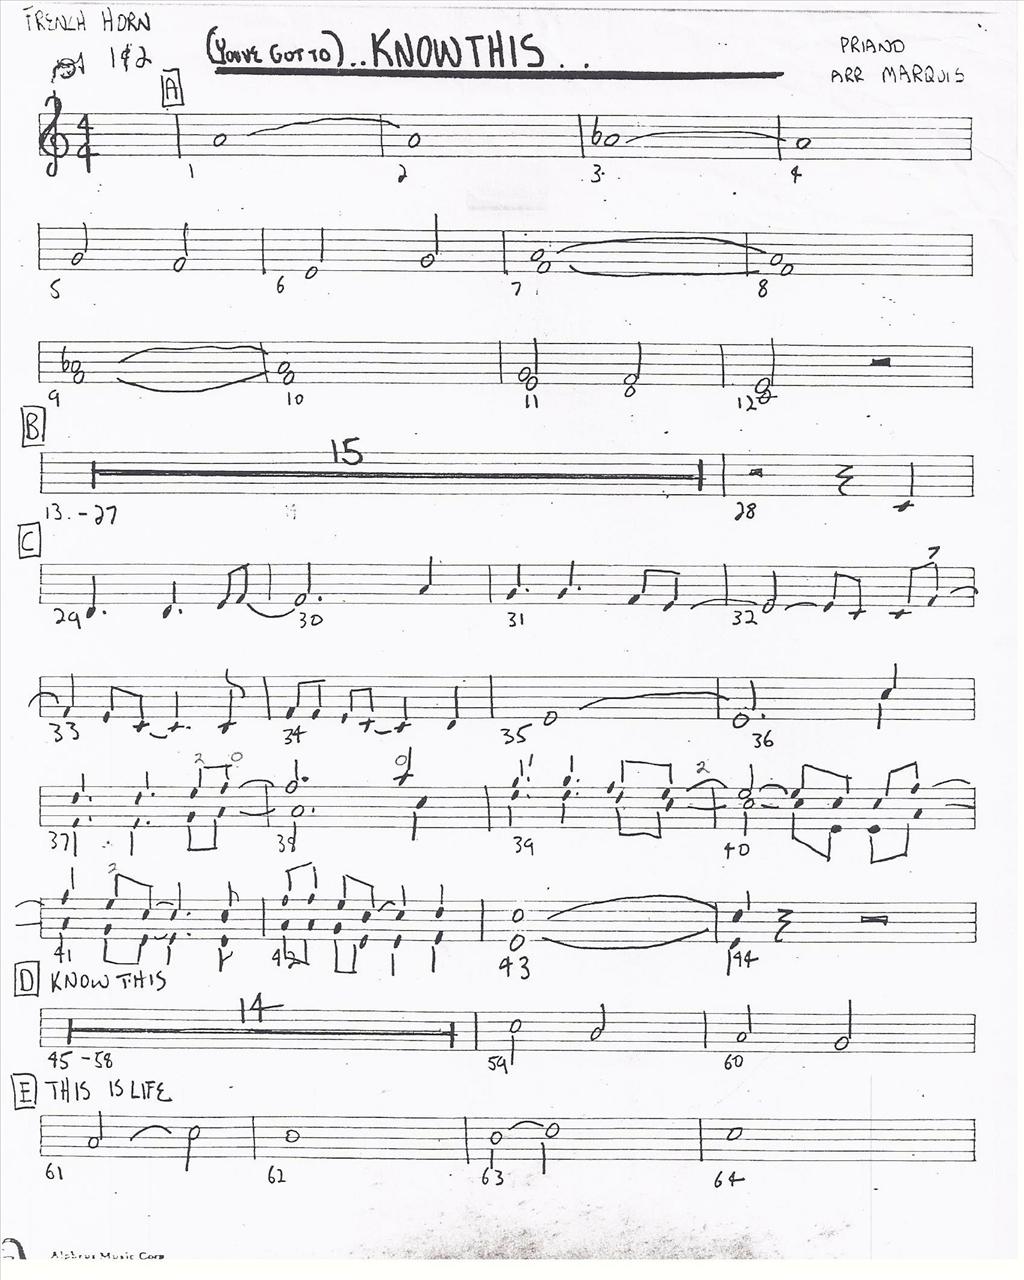 FRENCH HORN
1&2
(YOU'VE GOT TO)..KNOW THIS..
PRIANO
ARR MARQUIS
A
4
4
1 2 3. 4
5 6 7 8
9 10 11 12
B
15
13.-27 28
C
7
29 30 31 32
33 34 35 36
2 0 0 2
37 38 39 40
2
41 42 43 44
D KNOW THIS
14
45-58 59 60
E THIS IS LIFE
61 62 63 64
Music Corp